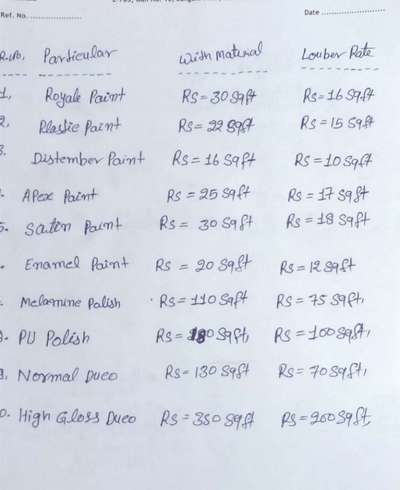 Ref. No. ................
Date ........................
Particular With Material Louber Rate
1, Royale Paint RS=30 Sqft RS=16 Sqft
2, Plastic Paint RS=22 Sqft RS=15 Sqft
3. Distember Paint RS=16 Sqft RS=10 Sqft
APex Paint RS=25 Sqft RS=17 Sqft
Satin Paint RS=30 Sqft RS=18 Sqft
Enamel Paint RS=20 Sqft RS=12 Sqft
Melamine Polish RS=110 Sqft RS=75 Sqft,
PU Polish RS= Sqft, RS=100 Sqft,
Normal Duco RS=130 Sqft RS=70 Sqft,
High Gloss Duco RS=350 Sqft RS=200 Sqft,